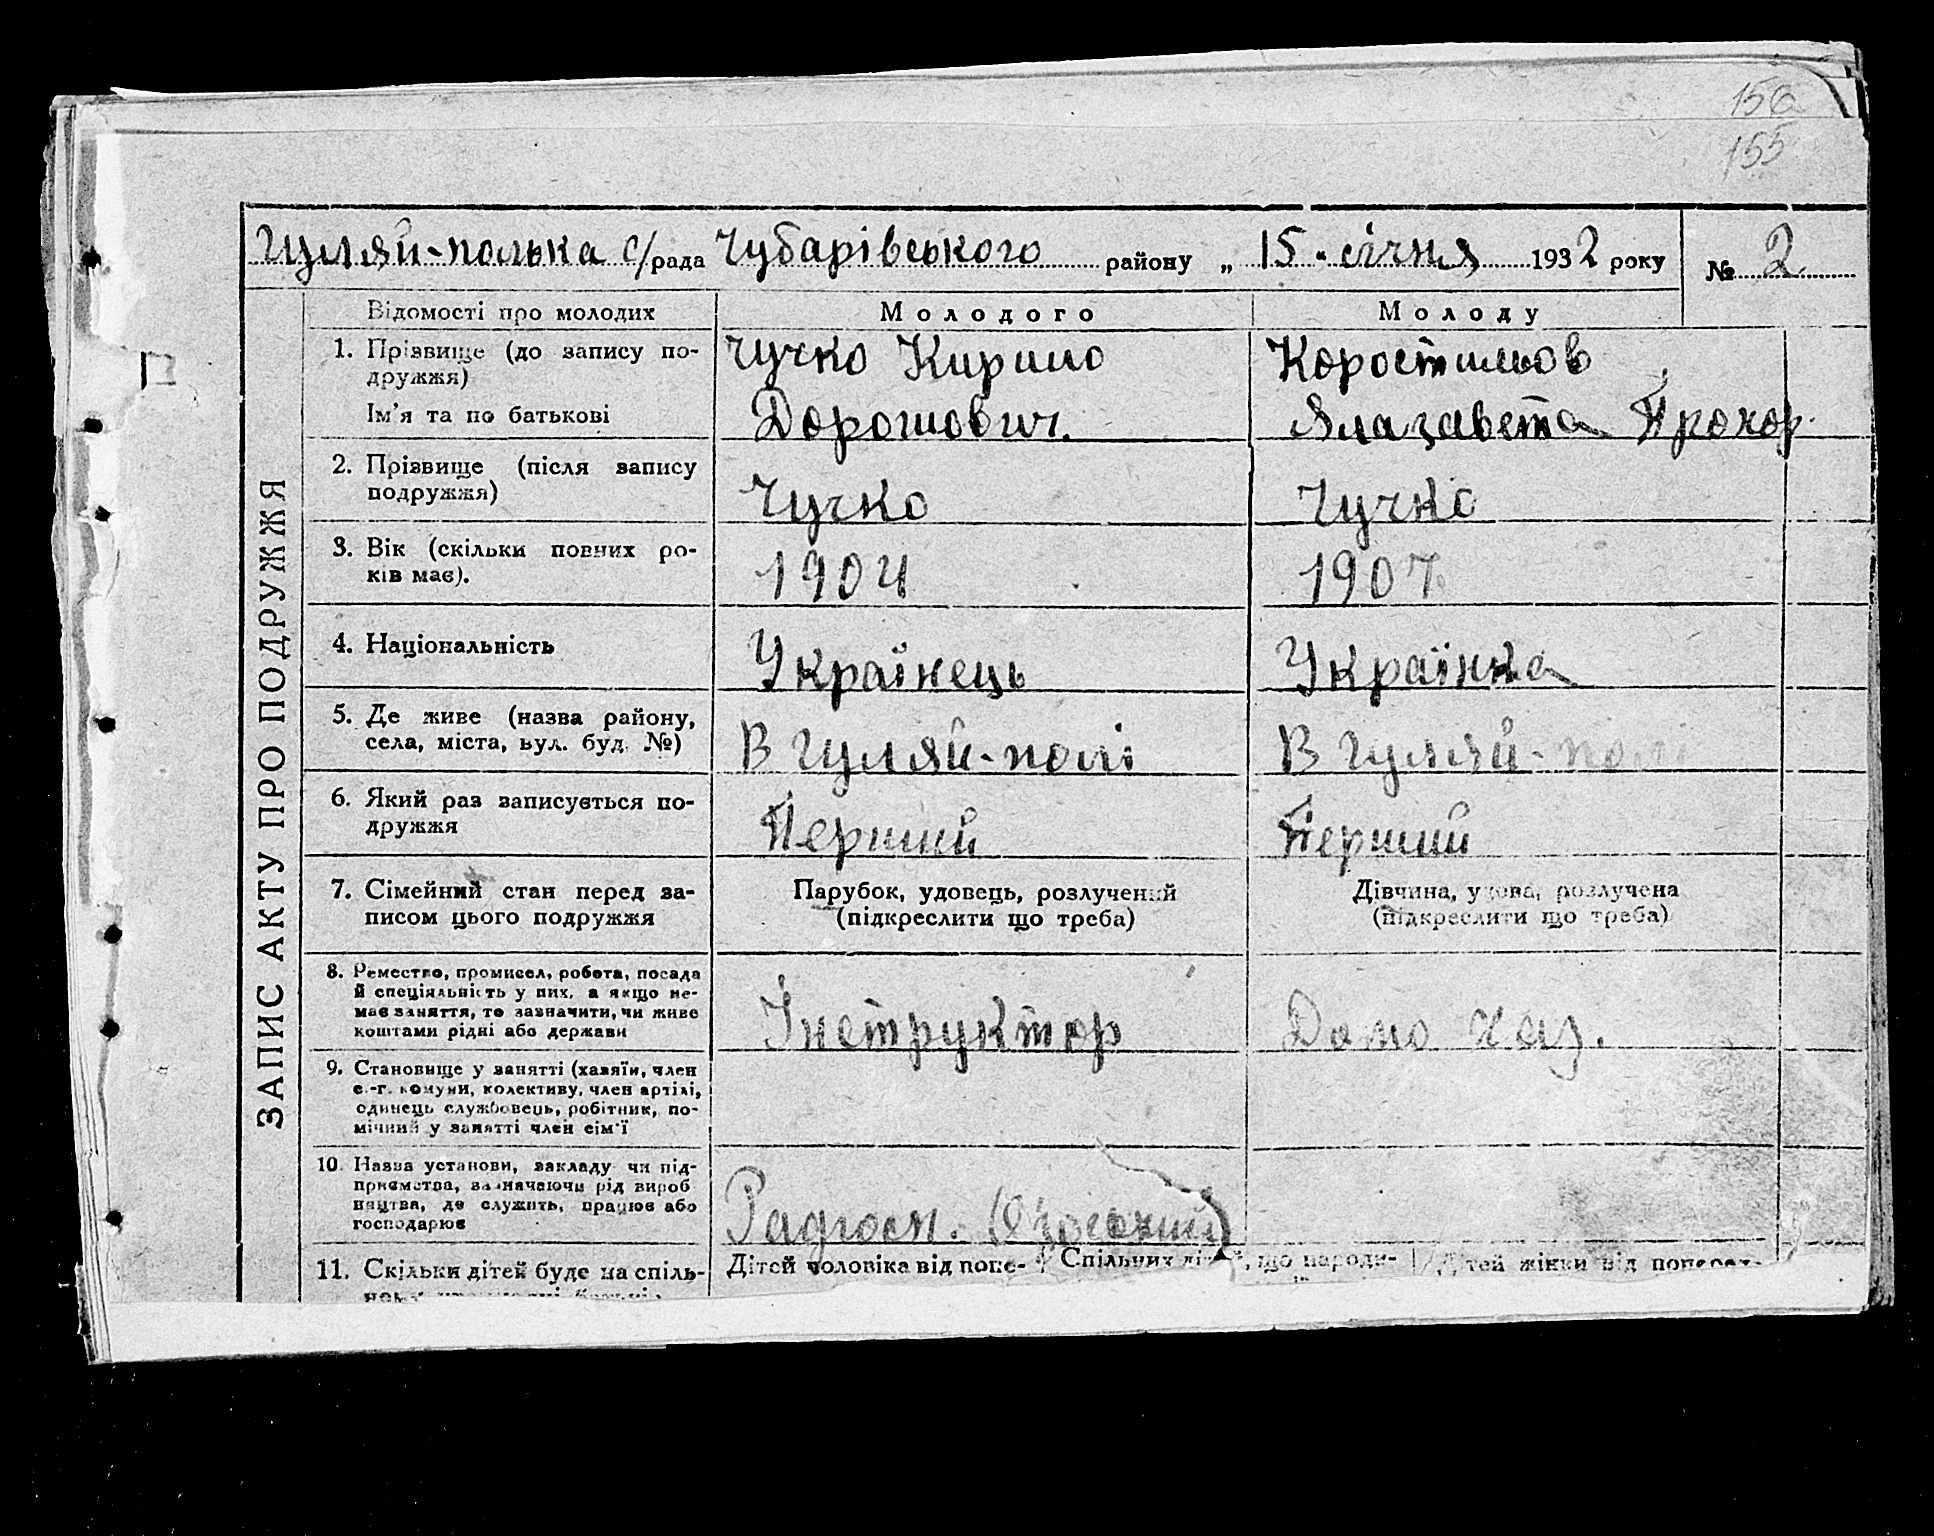 156
155
Гуляй-полька с/рада Чубарівського району „ 15 " січня 1932 року № 2
ЗАПИС АКТУ ПРО ПОДРУЖЖЯ
Відомості про молодих Молодого Молоду
1. Прізвище (до запису по- Чучко Кирило Коростильов
дружжя)
Ім'я та по батькові Дорошович. Ялазавета Прохор.
2. Прізвище (після запису
подружжя) Чучко Чучко
3. Вік (скільки повних ро-
ків має). 1904 1907
4. Національність Українець Українка
5. Де живе (назва району,
села, міста, вул. буд. №) В Гуляй-полі В Гуляй-полі
6. Який раз записується по-
дружжя Перший Перший
7. Сімейний стан перед за- Парубок, удовець, розлучений Дівчина, удова, розлучена
писом цього подружжя (підкреслити що треба) (підкреслити що треба)
8. Ремество, промисел, робота, посада
й спеціяльність у них, а якщо не-
має заняття, то зазначити, чи живе
коштами рідні або держави Інструктор Домо хаз.
9. Становище у занятті (хазяїн, член
с.-г. комуни, колективу, член артілі,
одинець службовець, робітник, по-
мічний у занятті член сім'ї
10. Назва установи, закладу чи під-
приємства, зазначаючи рід вироб
ництва, де служить, працює або
господарює Радгосп.
11. Скільки дітей буде на спіль- Дітей чоловіка від попе- Спільних дітей, що народи- Дітей жінки від поперед-